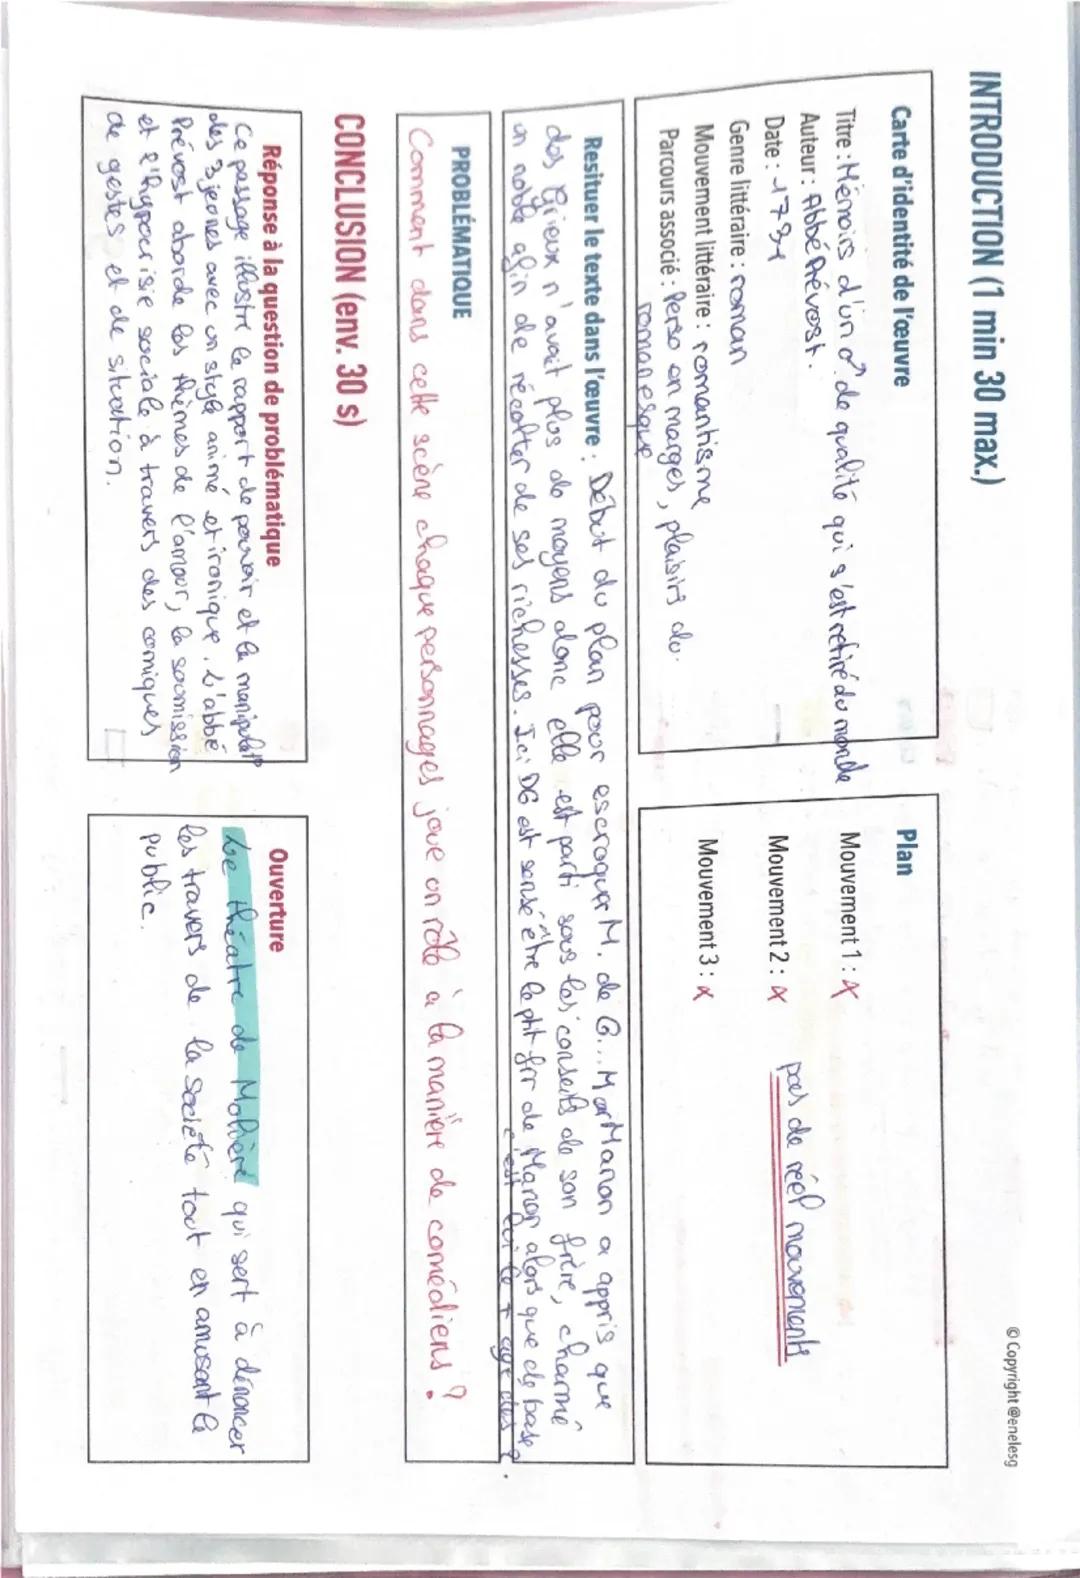 © Copyright @enelesg
INTRODUCTION (1 min 30 max.)
Carte d'identité de l'œuvre
Titre : Mémoirs d'un ♂ de qualité qui s'est retiré du monde
Auteur : Abbé Prévost.
Date : 1731
Genre littéraire : roman
Mouvement littéraire : romantisme
Parcours associé : Perso en marges, plaisirs du
romanesque
Plan
Mouvement 1 : x
Mouvement 2 : x
Mouvement 3 : x
pas de réel mouvements
Resituer le texte dans l'œuvre : Début du plan pour escroquer M. de G... M Manon a appris que
des Grieux n'avait plus de moyens donc elle est parti sous les conseils de son frère, charmé
un noble afin de récolter de ses richesses. Ici DG est sensé être le ptit frr de Manon alors que de base
c'est lui le + agé des 2.
PROBLÉMATIQUE
Comment dans cette scène chaque personnages joue un rôle à la manière de comédiens ?
CONCLUSION (env. 30 s)
Réponse à la question de problématique
Ce passage illustre le rapport de pouvoir et la manipulat°
des 3 jeunes avec un style animé et ironique. L'abbé
Prévost aborde les thèmes de l'amour, la soumission
et l'hypocrisie sociale à travers des comiques
de gestes et de situation.
Ouverture
Le théatre de Molière qui sert à dénoncer
les travers de la société tout en amusant le
public.